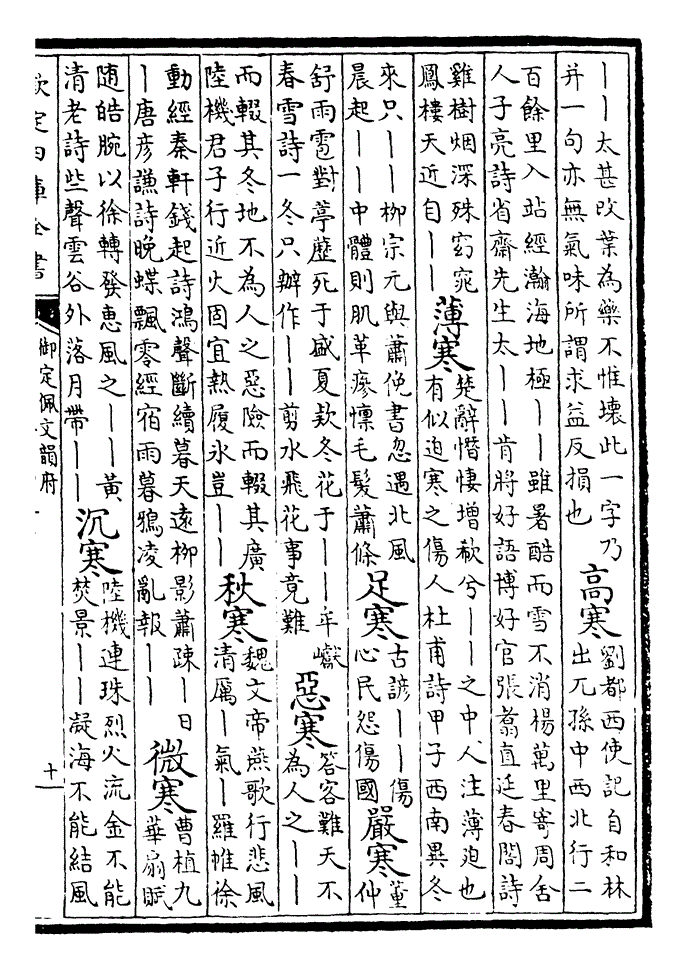 ——太甚改葉為藥不惟壞此一字乃
并一句亦無氣味所謂求益反損也
高寒
劉都西使記自和林
出兀孫中西北行二
百餘里入站經瀚海地極——雖暑酷而雪不消楊萬里寄周舍
人子亮詩省齋先生太——肯將好語博好官張翥直延春閣詩
雞樹烟深殊窈窕
鳳樓天近自——
薄寒
楚辭憯悽增欷兮——之中人注薄迫也
有似迫寒之傷人杜甫詩甲子西南異冬
來只——柳宗元與蕭俛書忽遇北風
晨起——中體則肌革瘮懍毛髮蕭條
足寒
古諺——傷
心民怨傷國
嚴寒
董
仲
舒雨雹對葶藶死于盛夏欵冬花于——牟巘
春雪詩一冬只辦作——剪水飛花事竟難
惡寒
答客難天不
為人之——
而輟其冬地不為人之惡險而輟其廣
陸機君子行近火固宜熱履氷豈——
秋寒
魏文帝燕歌行悲風
清厲—氣—羅帷徐
動經秦軒錢起詩鴻聲斷續暮天遠柳影蕭疎—日
—唐彦謙詩晚蝶飄零經宿雨暮鴉凌亂報——
微寒
曹植九
華扇賦
随皓腕以徐轉發惠風之——黄
清老詩些聲雲谷外落月帶——
沉寒
陸機連珠烈火流金不能
焚景——凝海不能結風
欽定四庫全書
御定佩文韻府
十